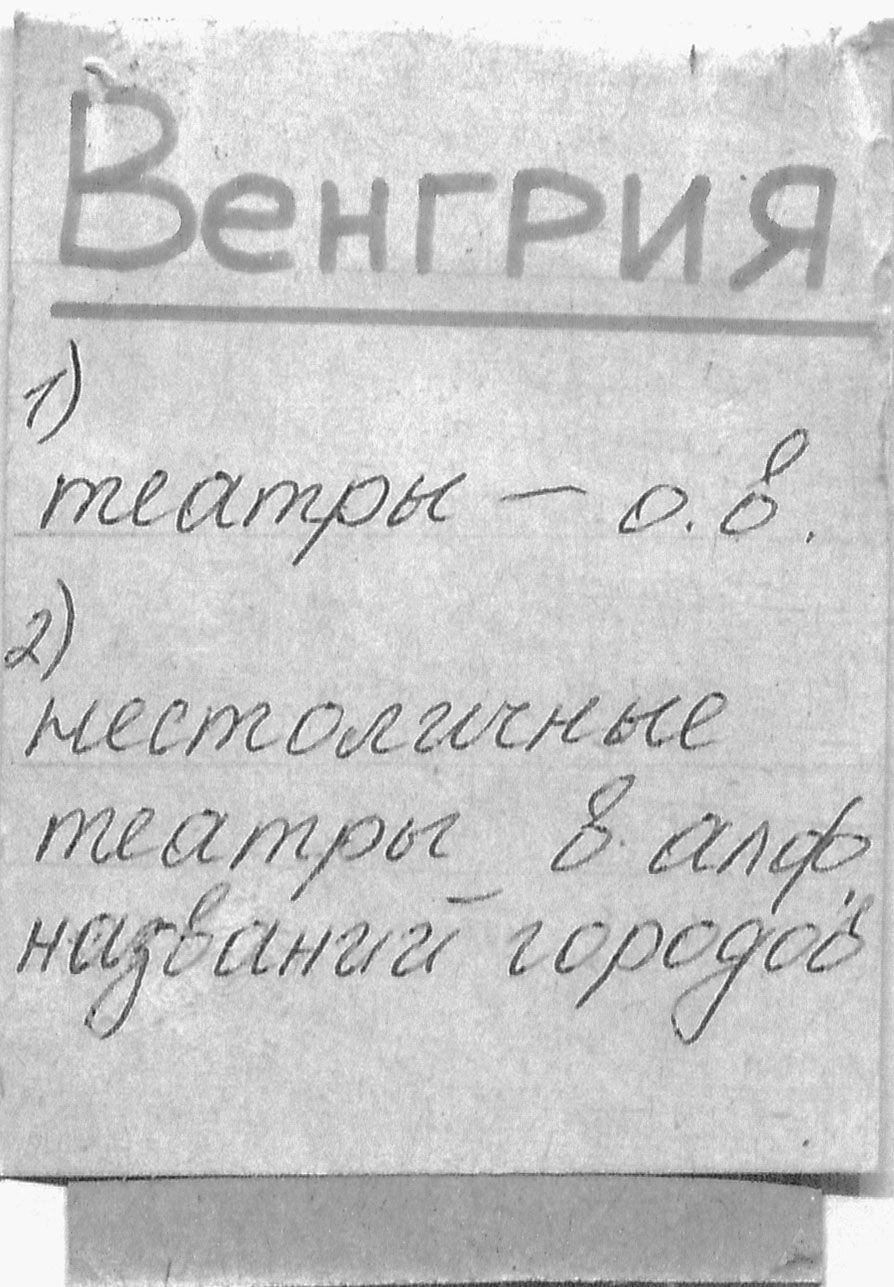 Венгрия
1)
театры – о.в.
2)
нестоличные
театры в алф.
названий городов